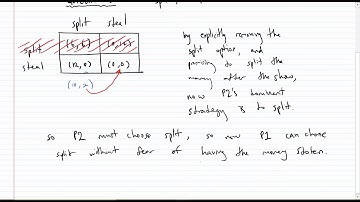 split steal
split
steal (12,0) (0,0)
by explicitly removing the
split option, and
promising to split the
money after the show,
now P2's dominant
strategy is to split.
so P2 must choose split, so now P1 can chose
split without fear of having the money stolen.